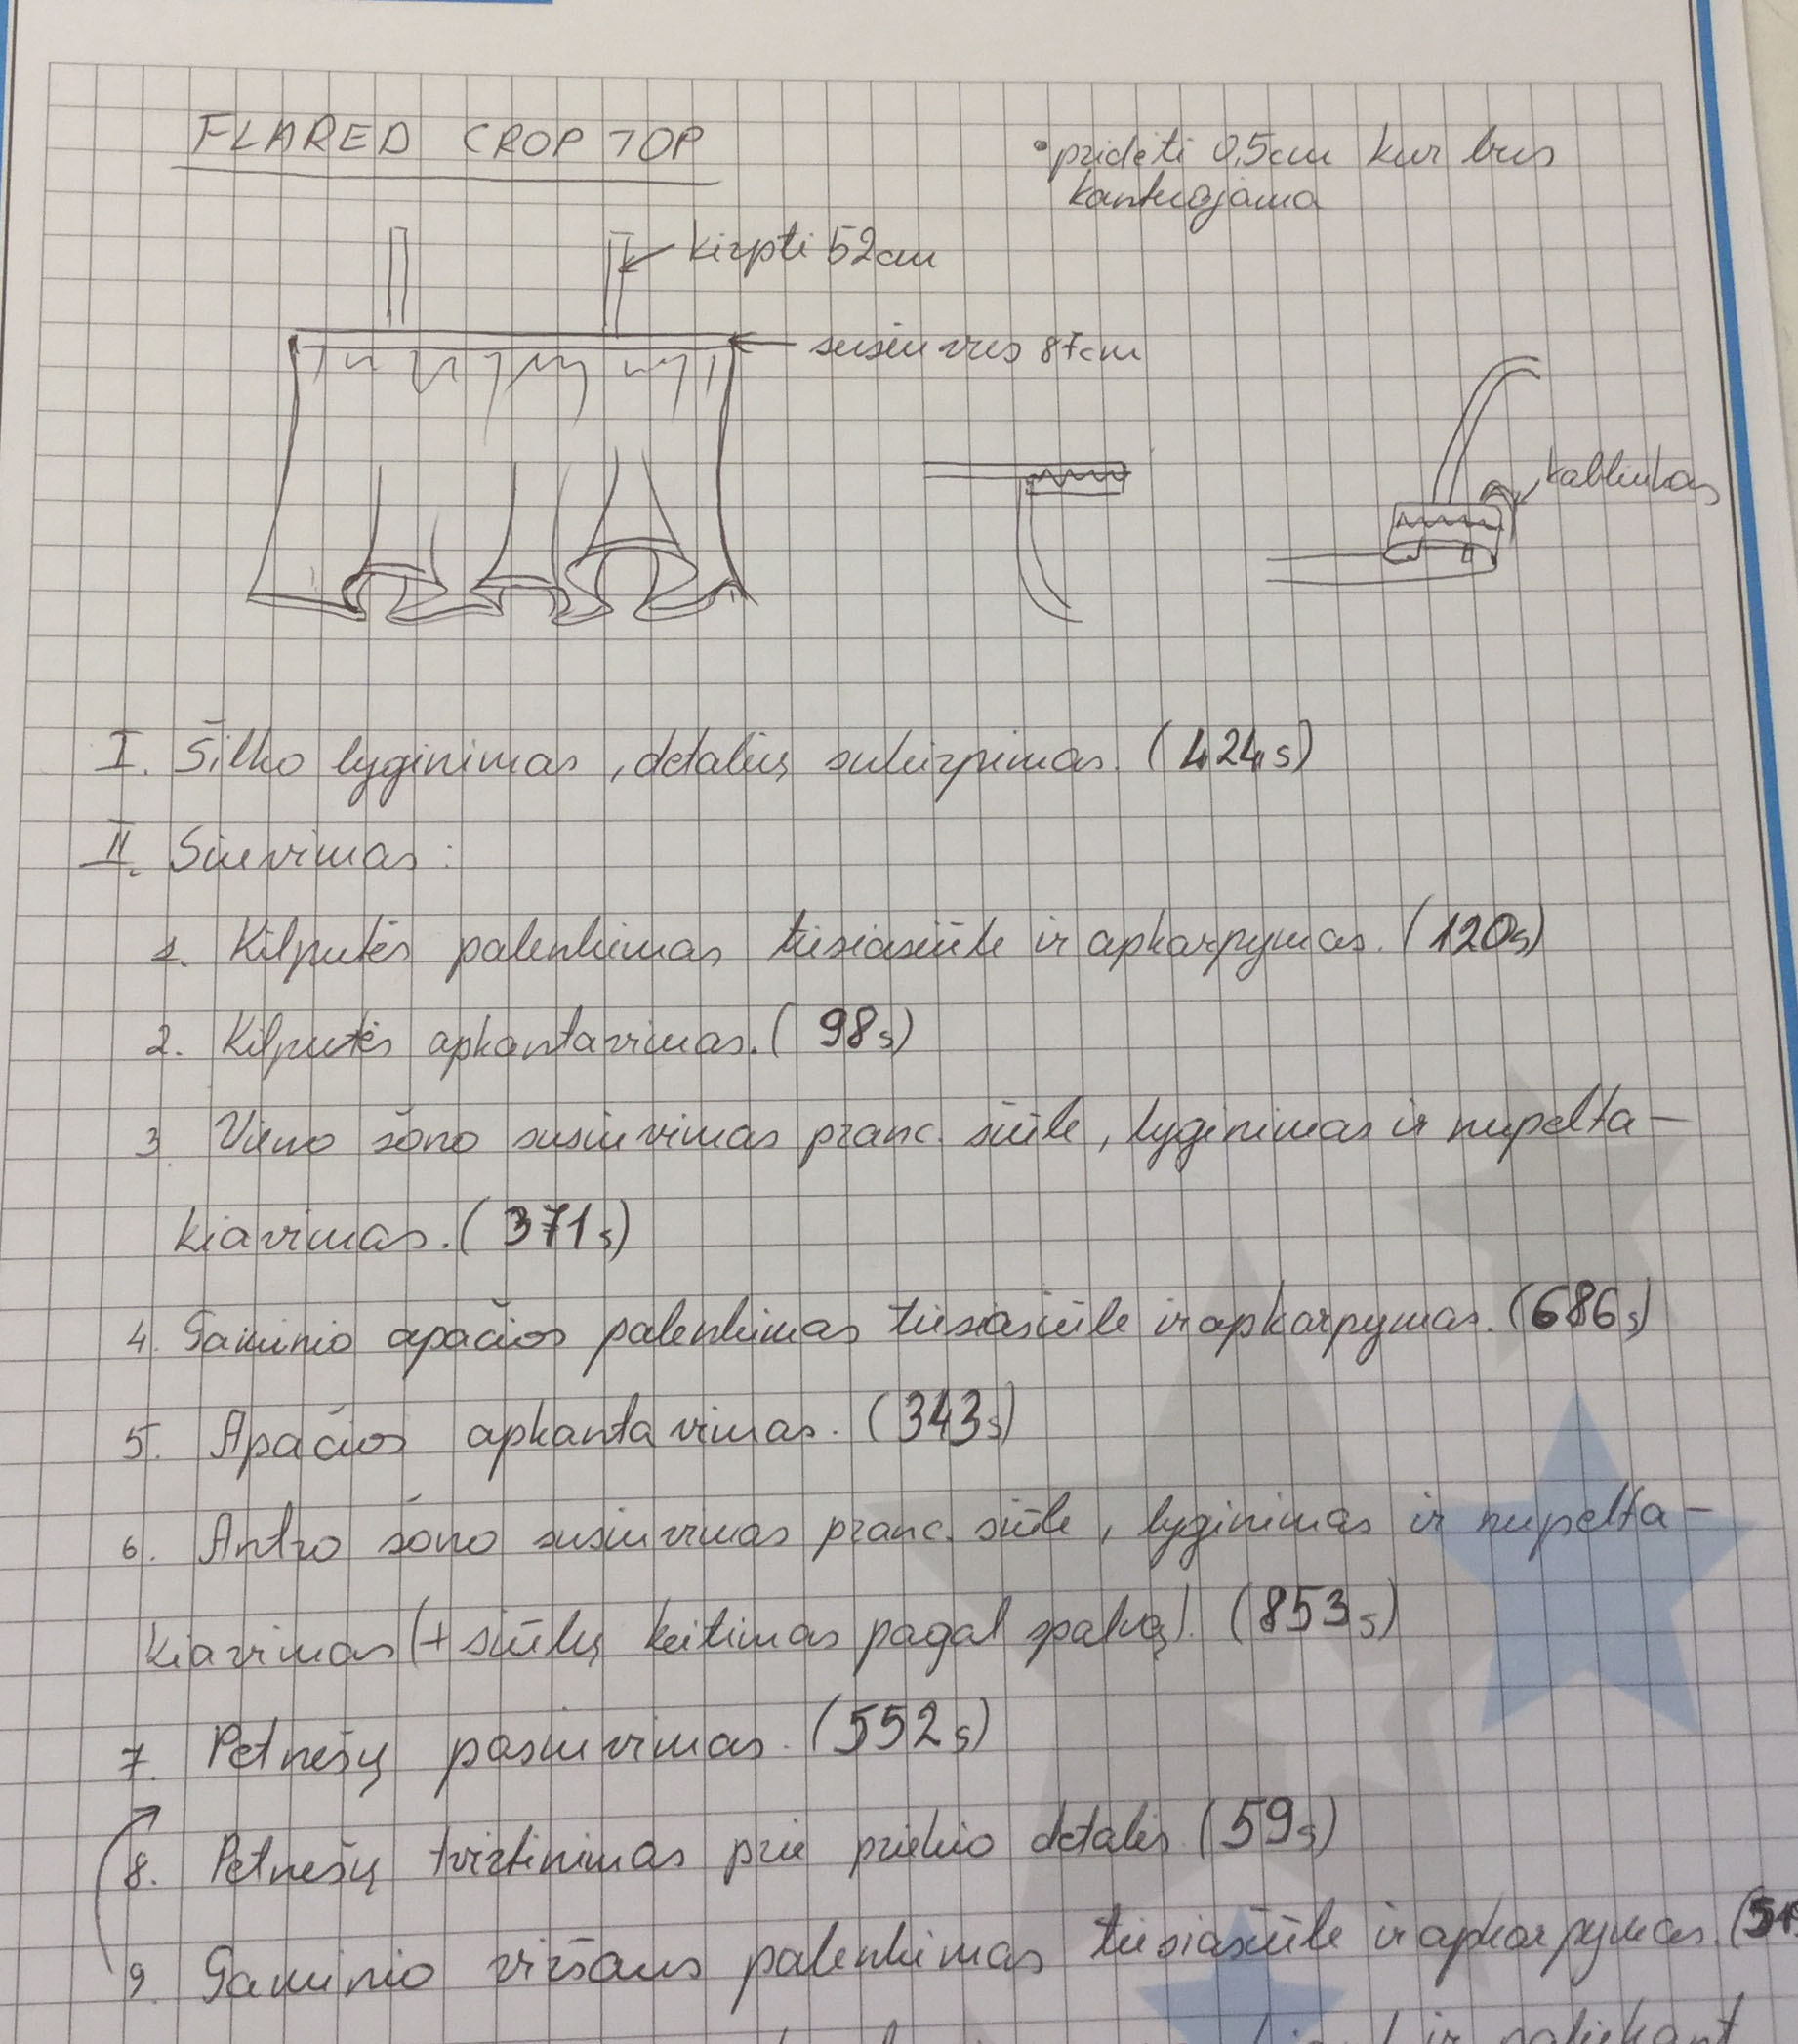 FLARED CROP TOP
• pridėti 0,5cm kur bus
kantuojama
kirpti 52cm
susiuvus 87cm
kabliukas
I. Šilko lyginimas, detalių sukirpimas. (424s)
II. Siuvimas:
1. Kilputės palenkimas tiesiasiūle ir apkarpymas. (120s)
2. Kilputės apkantavimas. (98s)
3. Vieno šono susiuvimas pranc. siūle, lyginimas ir nupelta-
kiavimas. (371s)
4. Gaminio apačios palenkimas tiesiasiūle ir apkarpymas. (686s)
5. Apačios apkantavimas. (343s)
6. Antro šono susiuvimas pranc. siūle, lyginimas ir nupelta-
kiavimas (+ siūlų keitimas pagal spalvą). (853s)
7. Petnešų pasiuvimas. (552s)
8. Petnešų tvirtinimas prie priekio detalės. (59s)
9. Gaminio viršaus palenkimas tiesiasiūle ir apkarpymas.